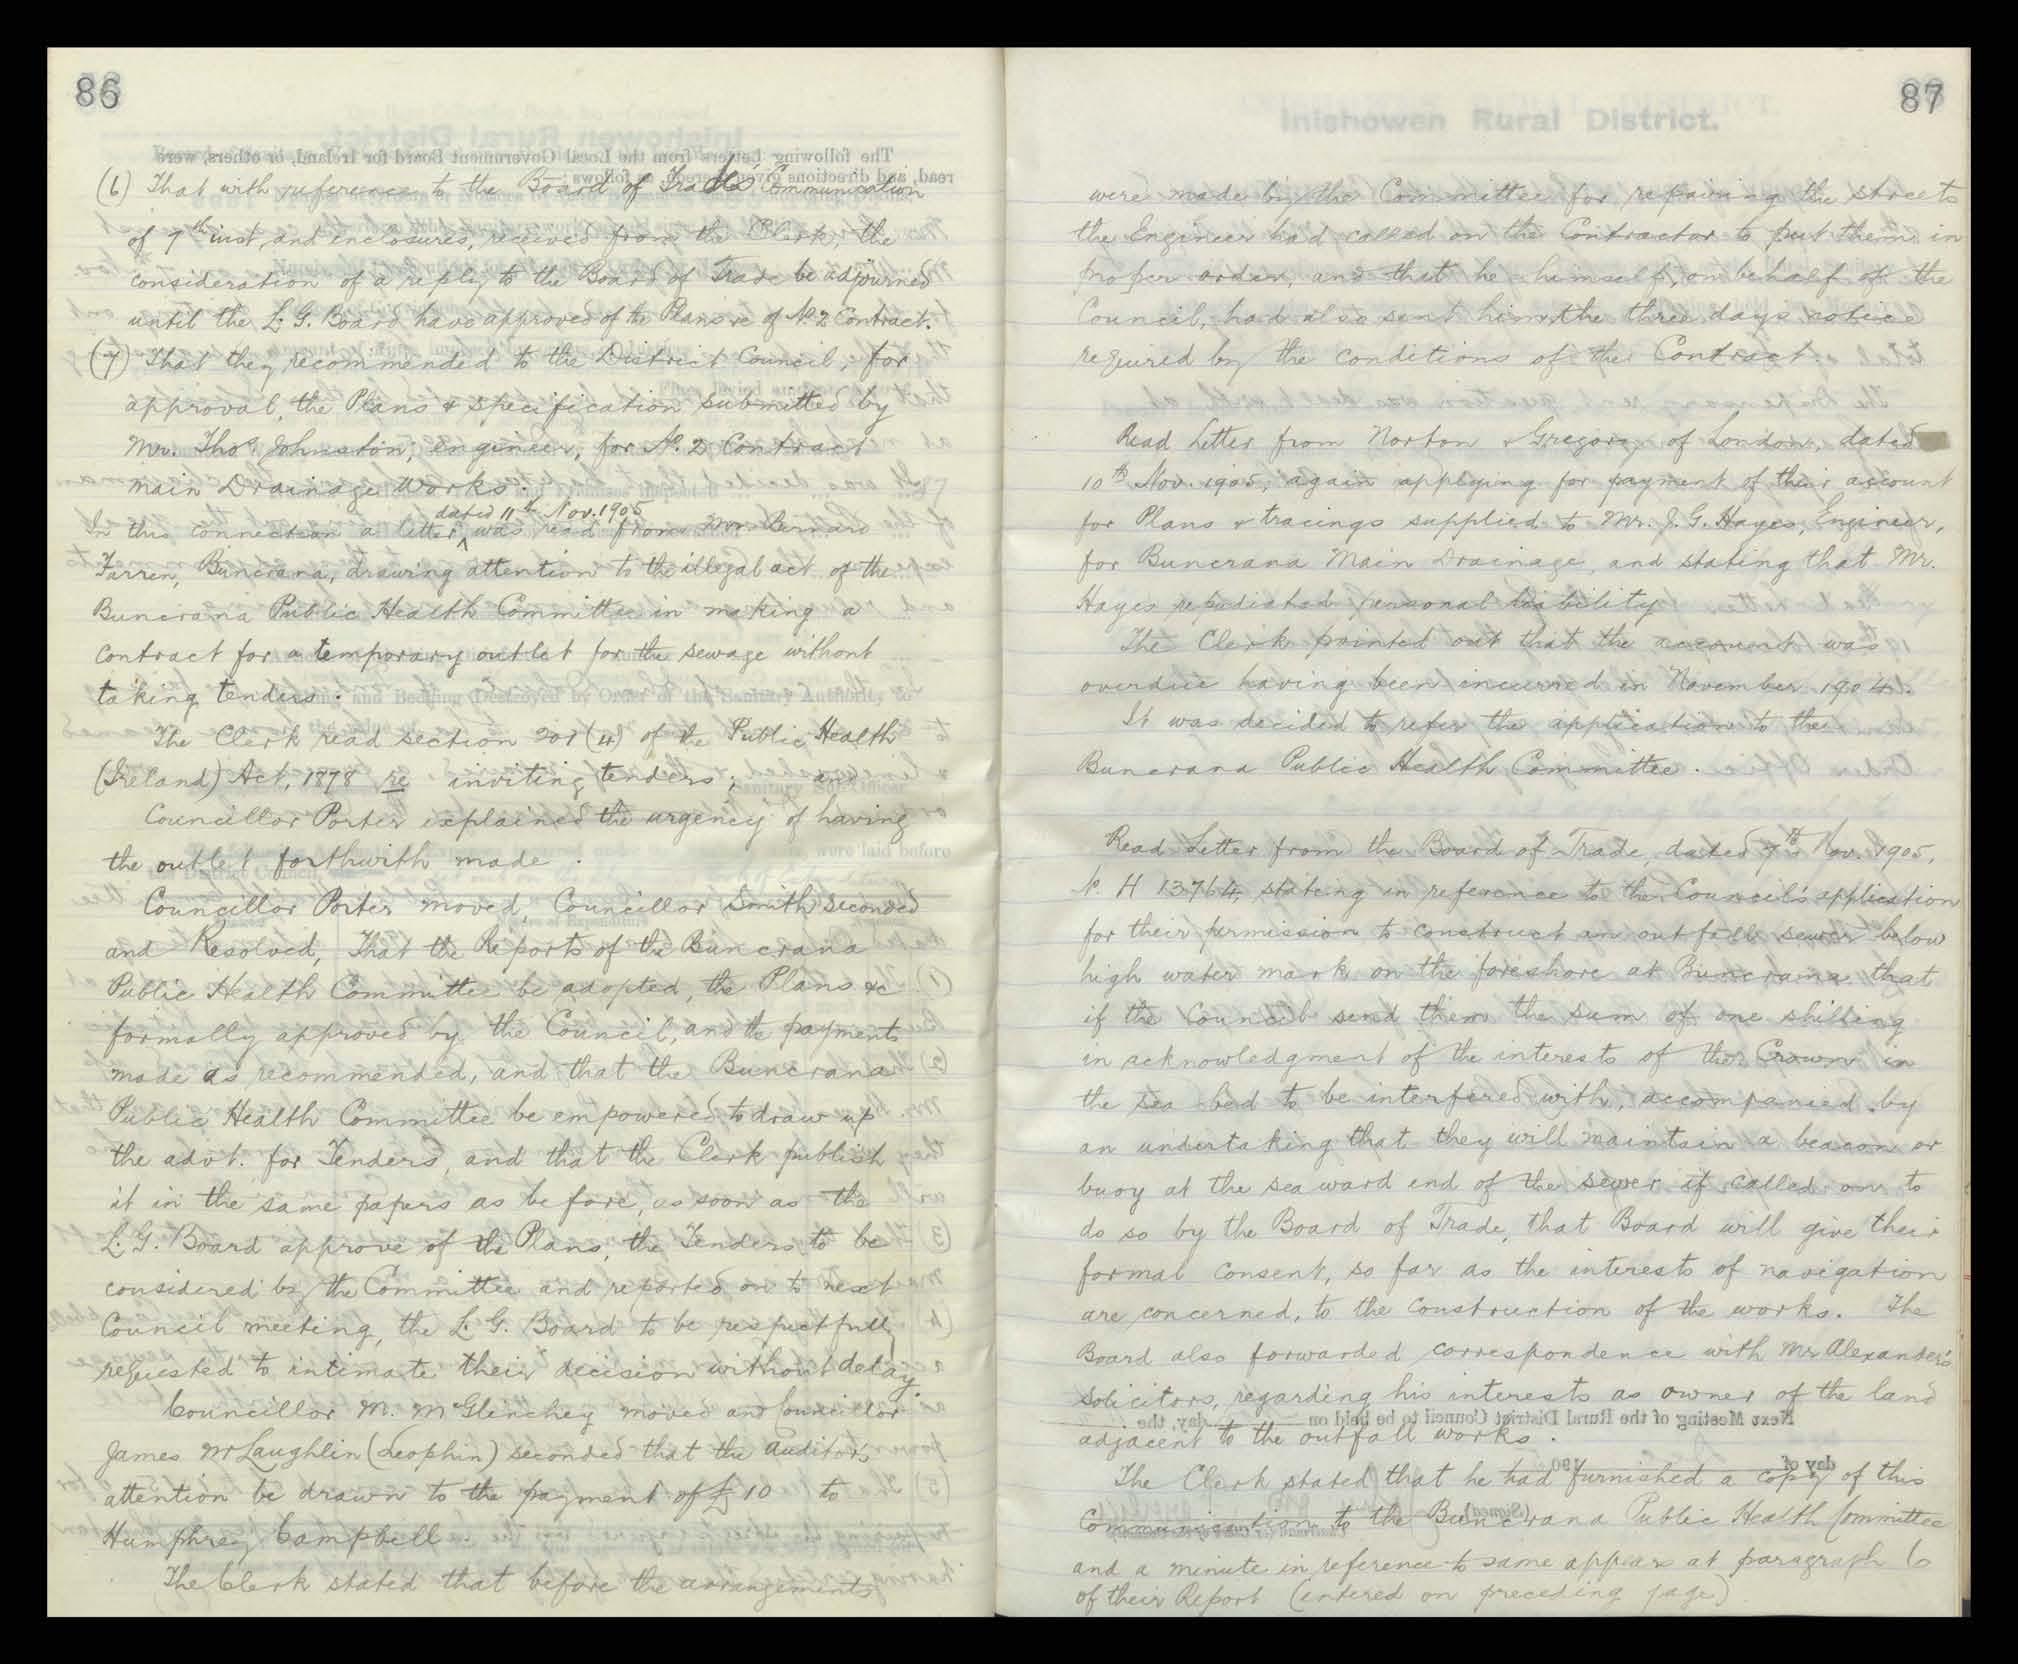 86
(6) That with reference to the Board of Trade's Communication
of 7th inst, and enclosures, received from the Clerk, the
consideration of a reply to the Board of Trade be adjourned
until the L. G. Board have approved of the Plans re of No. 2 Contract.
(7) That they recommended to the District Council, for
approval, the Plans & specification submitted by
Mr. Thos. Johnston, Engineer, for No. 2 Contract
Main Drainage Works.
dated 11th Nov. 1905
In this connection a letter ^ was read from Mr. Bernard
Farren, Buncrana, drawing attention to the illegal act of the
Buncrana Public Health Committee in making a
contract for a temporary outlet for the sewage without
taking tenders.
The Clerk read section 201 (4) of the Public Health
(Ireland) Act, 1878 re inviting tenders; and
Councillor Porter explained the urgency of having
the outlet forthwith made.
Councillor Porter moved, Councillor Smith seconded
and Resolved, That the Reports of the Buncrana
Public Health Committee be adopted, the Plans &c
formally approved by the Council, and the payments
made as recommended, and that the Buncrana
Public Health Committee be empowered to draw up
the advt. for Tenders, and that the Clerk publish
it in the same papers as before, as soon as the
L. G. Board approve of the Plans, the Tenders to be
considered by the Committee and reported on to next
Council meeting, the L. G. Board to be respectfully
requested to intimate their decision without delay.
Councillor M. McGlinchey moved and Councillor
James McLaughlin (Leophin) seconded that the Auditor's
attention be drawn to the payment of £10 to
Humphrey Campbell.
The Clerk stated that before the arrangements
87
Inishowen Rural District.
were made by the Committee for repairing the streets
the Engineer had called on the Contractor to put them in
proper order, and that he himself, on behalf of the
Council, had also sent him the three days notice
required by the conditions of the Contract.
Read Letter from Norton & Gregory of London, dated
10th Nov. 1905, again applying for payment of their account
for Plans & tracings supplied to Mr. J. G. Hayes, Engineer,
for Buncrana Main Drainage, and stating that Mr.
Hayes repudiated personal liability
The Clerk pointed out that the account was
overdue having been incurred in November 1904.
It was decided to refer the application to the
Buncrana Public Health Committee.
Read Letter from the Board of Trade, dated 7th Nov. 1905,
No. H 13764, stating in reference to the Council's application
for their permission to construct an outfall sewer below
high water mark on the foreshore at Buncrana that
if the Council send them the sum of one shilling
in acknowledgment of the interests of the Crown in
the sea bed to be interfered with, accompanied by
an undertaking that they will maintain a beacon or
buoy at the seaward end of the sewer if called on to
do so by the Board of Trade, that Board will give their
formal consent, so far as the interests of navigation
are concerned, to the construction of the works. The
Board also forwarded correspondence with Mr Alexander's
solicitors, regarding his interests as owner of the land
adjacent to the outfall works.
The Clerk stated that he had furnished a copy of this
Communication to the Buncrana Public Health Committee
and a minute in reference to same appears at paragraph 6
of their Report (entered on preceding page)